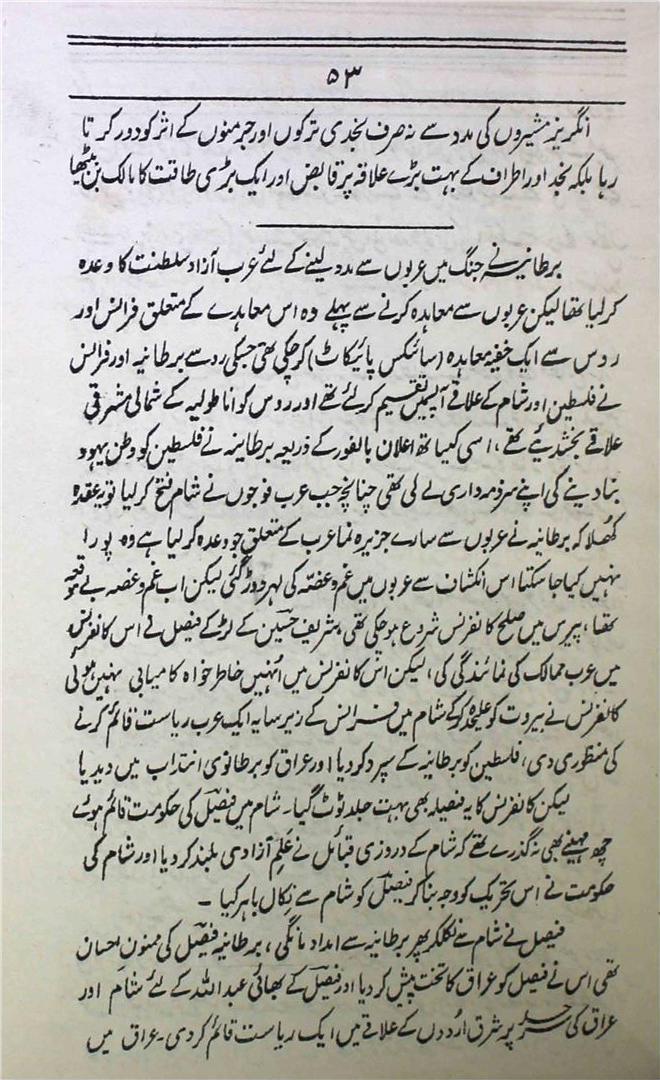 ۵۳
انگریز مشیروں کی مدد سے نہ صرف نجدی ترکوں اور جرمنوں کے اثر کو دور کرتا
رہا بلکہ نجد اور اطراف کے بہت بڑے علاقہ پر قابض اور ایک بڑی طاقت کا مالک بن بیٹھا
برطانیہ نے جنگ میں عربوں سے مدد لینے کے لئے عرب آزاد سلطنت کا وعدہ
کر لیا تھا لیکن عربوں سے معاہدہ کرنے سے پہلے وہ اس معاہدے کے متعلق فرانس اور
روس سے ایک خفیہ معاہدہ (سائکس پائیکاٹ) کر چکی تھی جسکی رو سے برطانیہ اور فرانس
نے فلسطین اور شام کے علاقے آپسمیں تقسیم کر لئے تھے اور روس کو اناطولیہ کے شمالی مشرقی
علاقے بخشدیئے تھے، اسی کیساتھ اعلان بالفور کے ذریعہ برطانیہ نے فلسطین کو وطن یہود
بنا دینے کی اپنے سر ذمہ داری لے لی تھی چنانچہ جب عرب فوجوں نے شام فتح کر لیا تو یہ عقدہ
کھُلا کہ برطانیہ نے عربوں سے سارے جزیرہ نما عرب کے متعلق جو وعدہ کر لیا ہے وہ پورا
نہیں کیا جا سکتا اس انکشاف سے عربوں میں غم و غصّہ کی لہر دوڑ گئی لیکن اب غم و غصہ بے موقعہ
تھا، پیرس میں صلح کانفرنس شروع ہو چکی تھی، شریف حسین کے لڑکے فیصل نے اس کانفرنس
میں عرب ممالک کی نمائندگی کی، لیکن اس کانفرنس میں اُنہیں خاطر خواہ کامیابی نہیں ہوئی
کانفرنس نے بیروت کو علیحدہ کر کے شام میں فرانس کے زیر سایہ ایک عرب ریاست قائم کرنے
کی منظوری دی، فلسطین کو برطانیہ کے سپرد کر دیا اور عراق کو برطانوی انتداب میں دیدیا
لیکن کانفرنس کا یہ فیصلہ بھی بہت جلد ٹوٹ گیا۔ شام میں فیصل کی حکومت قائم ہوئے
چھ مہینے بھی نہ گذرے تھے کہ شام کے دروزی قبائل نے عَلمِ آزادی بلند کر دیا اور شام کی
حکومت نے اس تحریک کو وجہ بنا کر فیصل کو شام سے نکال باہر کیا۔
فیصل نے شام سے نکلکر پھر برطانیہ سے امداد مانگی، برطانیہ فیصل کی ممنون احسان
تھی اس نے فیصل کو عراق کا تخت پیش کر دیا اور فیصل کے بھائی عبد اللہ کے لئے شام اور
عراق کی سرحد پر شرق اُردن کے علاقے میں ایک ریاست قائم کر دی۔ عراق میں